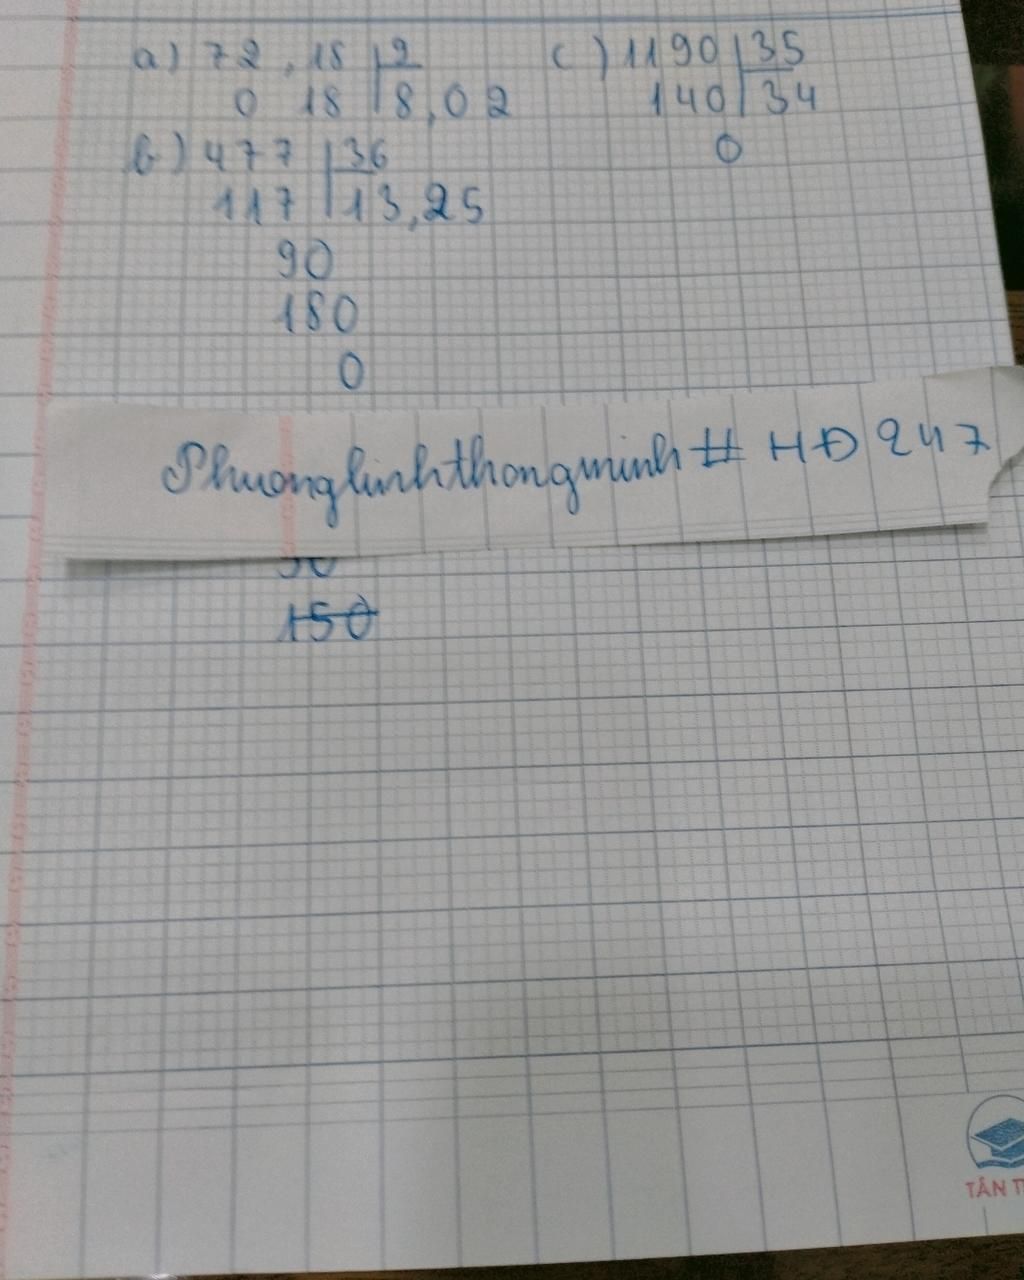 a) 72,18 | 9
0 18 | 8,02
b) 477 | 36
117 | 13,25
90
180
0
c) 1190 | 35
140 | 34
0
Phuonglinhthongminh # HĐ 247
150
TÂN